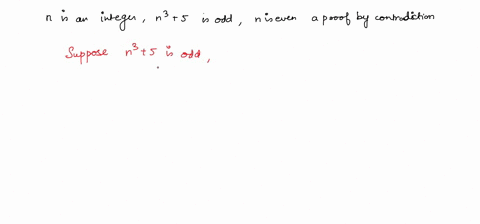 n is an integer, n³+5 is odd, n is even a proof by contradiction
Suppose n³+5 is odd,